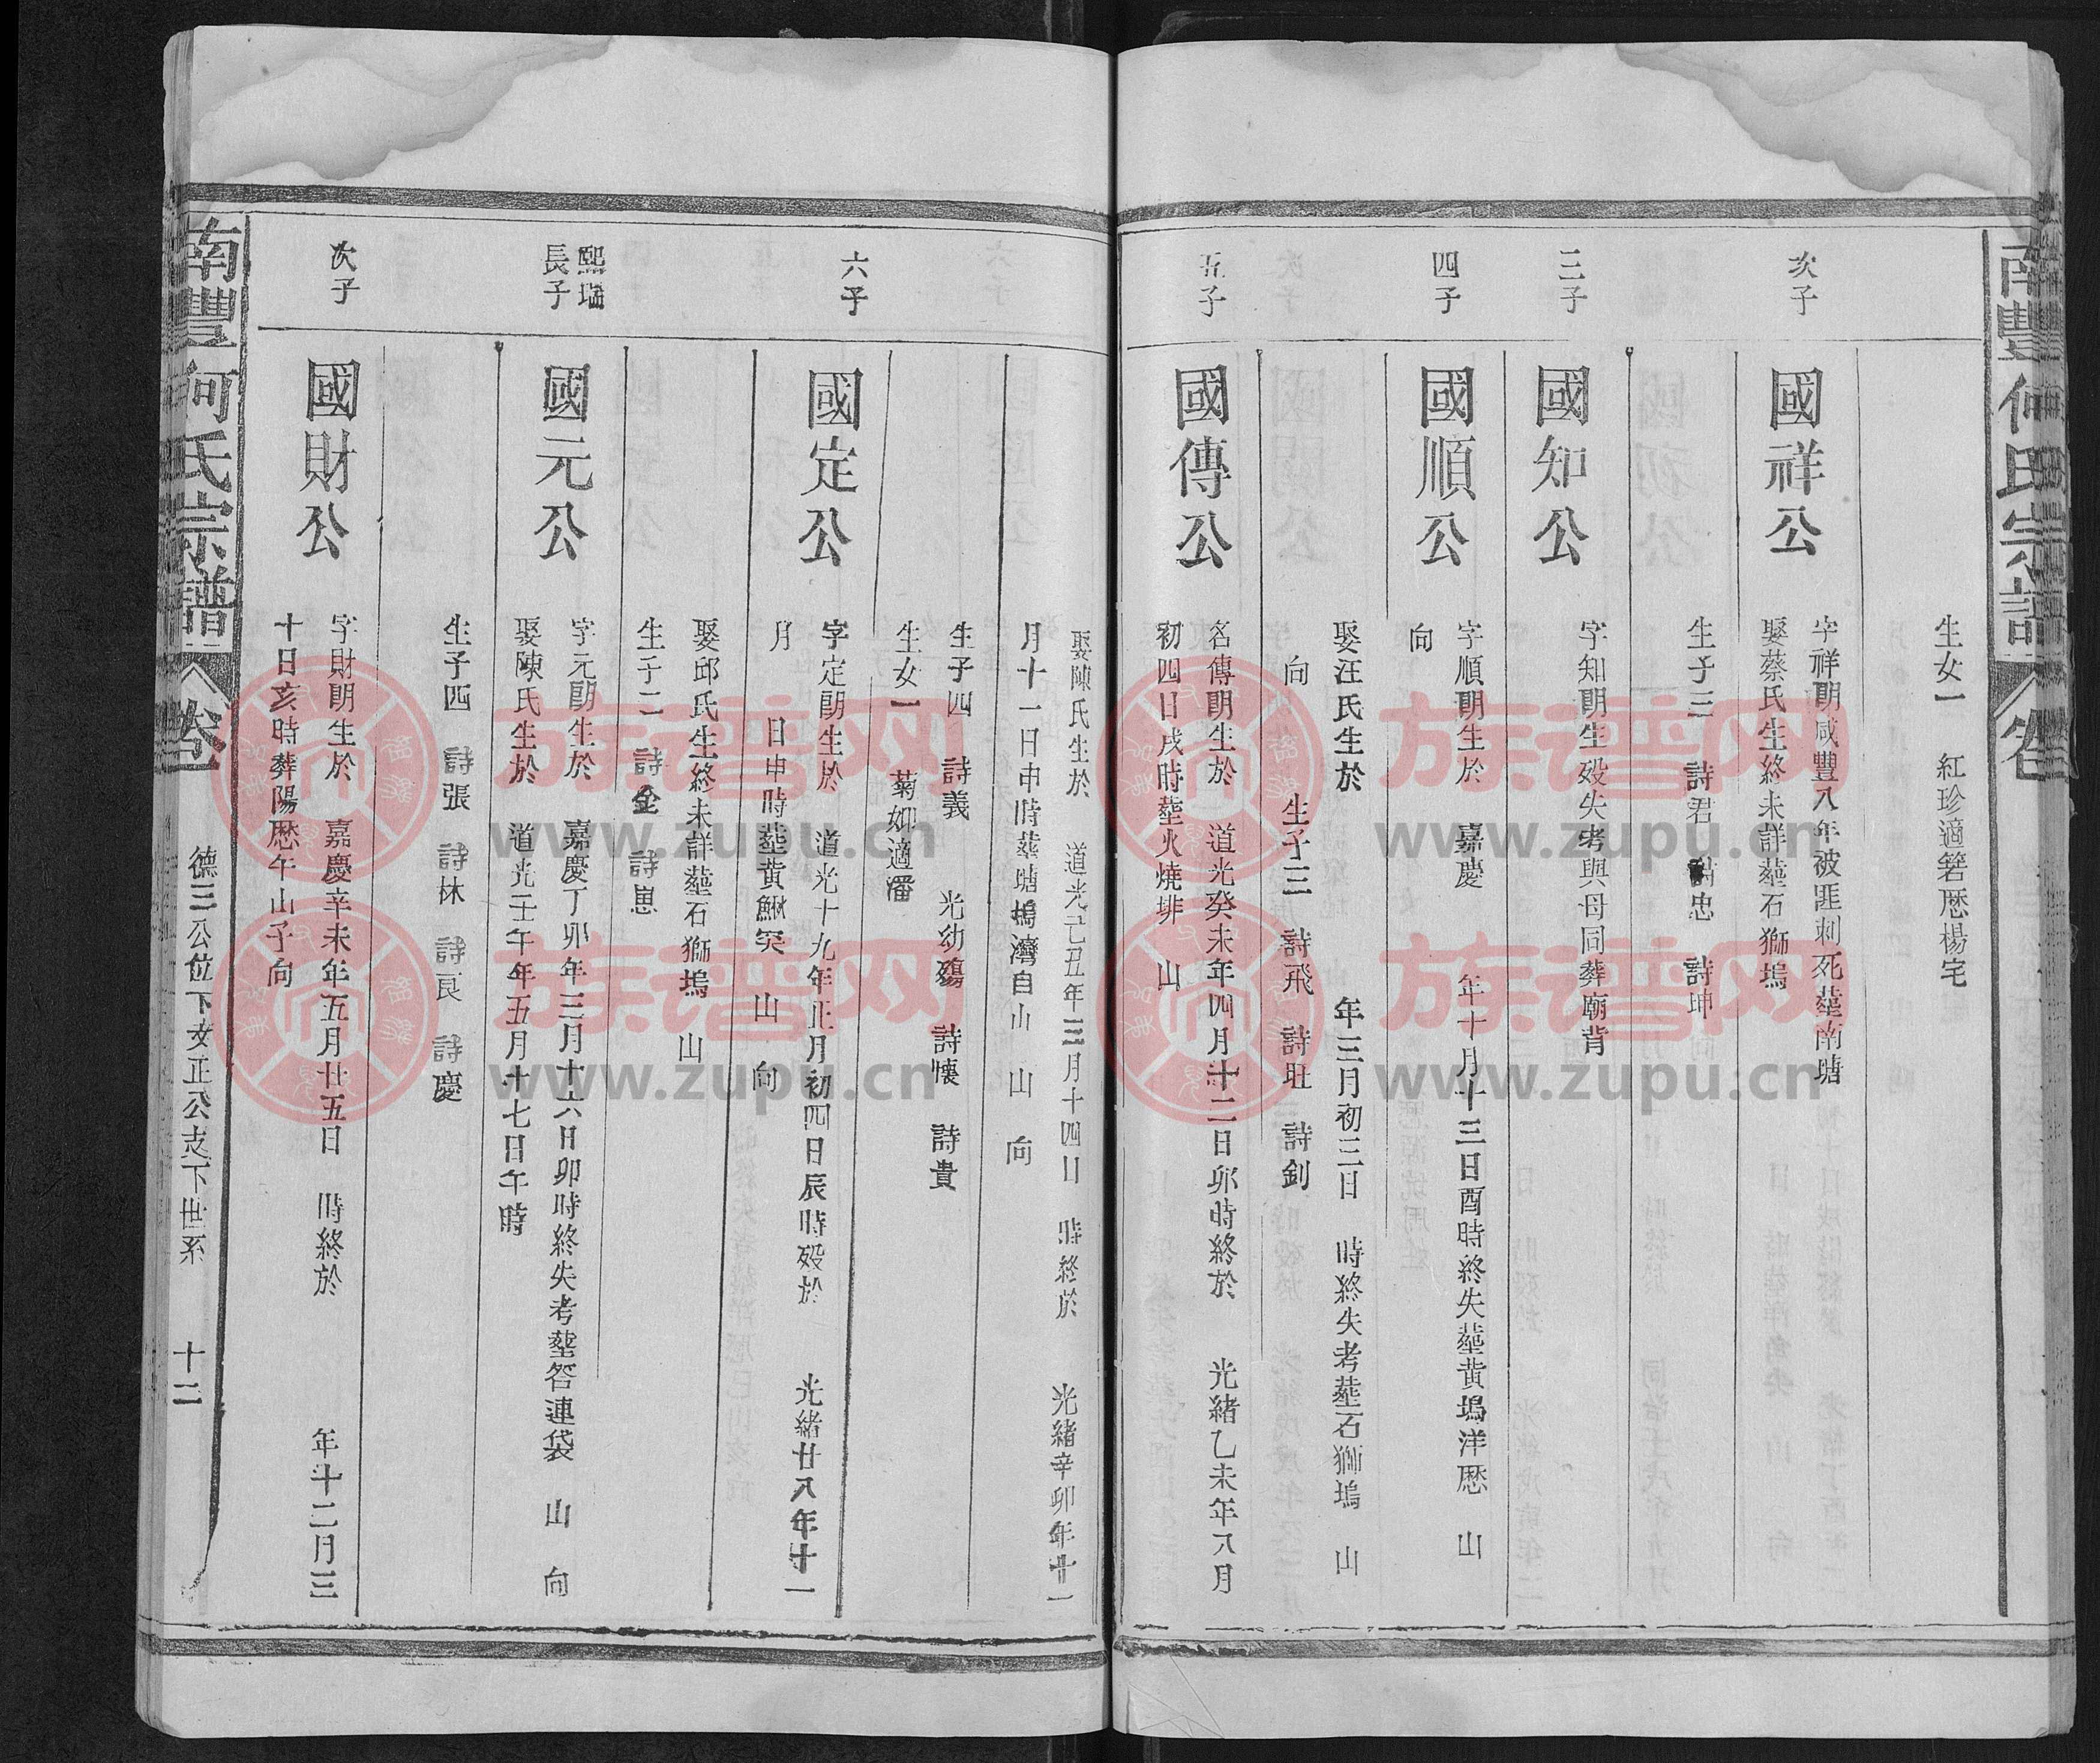 南豐何氏宗譜
卷
生女一 紅珍適箬厯楊宅
次子
國祥公
字祥朗咸豐八年被匪刺死塟南塘
娶蔡氏生終未詳塟石獅塢
生子三 詩君 詩忠 詩坤
三子
國知公
字知朗生殁失考與母同葬廟背
四子
國順公
字順朗生於 嘉慶 年十月十三日酉時終失塟黄塢洋厯 山
向
娶汪氏生於 年三月初三日 時終失考塟石獅塢 山
向 生子三 詩飛 詩壯 詩釗
五子
國傳公
名傳朗生於 道光癸未年四月十二日卯時終於 光緒乙未年八月
初四日戌時塟火燒排 山
娶陳氏生於 道光己丑年三月十四日 時終於 光緒辛卯年十一
月十一日申時塟塘塢灣自山 山 向
生子四 詩義 光幼殤 詩懷 詩貴
生女一 菊如適潘
六子
國定公
字定朗生於 道光十九年正月初四日辰時殁於 光緒廿八年十一
月 日申時塟黄鰍突 山 向
娶邱氏生終未詳塟石獅塢 山
生子二 詩金 詩崽
熙瑞
長子
國元公
字元朗生於 嘉慶丁卯年三月十六日卯時終失考塟答連袋 山 向
娶陳氏生於 道光壬午年五月十七日午時
生子四 詩張 詩林 詩良 詩慶
次子
國財公
字財朗生於 嘉慶辛未年五月廿五日 時終於 年十二月三
十日亥時葬陽厯午山子向
南豐何氏宗譜
卷
德三公位下文正公支下世系
十二
族谱网
www.zupu.cn
族谱网
www.zupu.cn
族谱网
www.zupu.cn
族谱网
www.zupu.cn